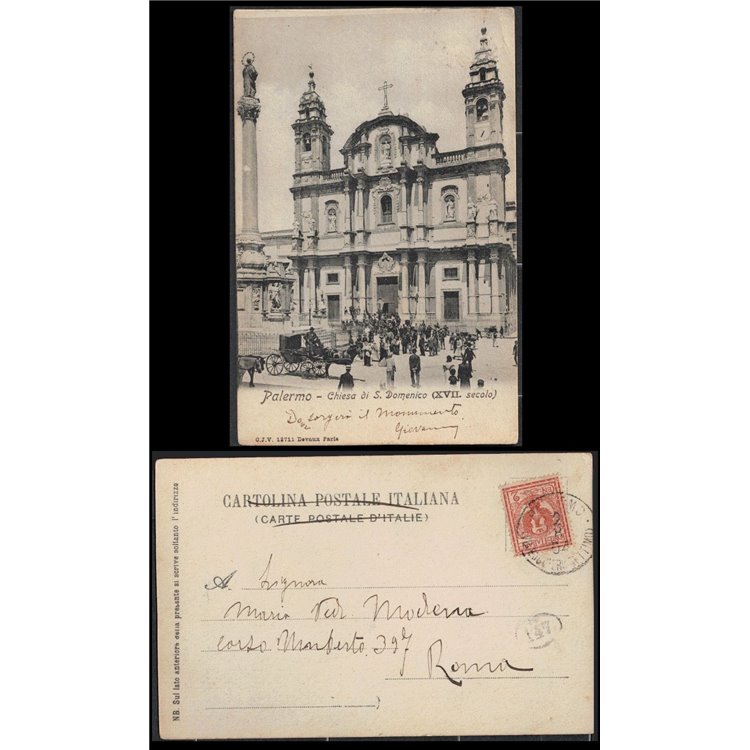 Palermo - Chiesa di S. Domenico (XVII. secolo)
Dove sorgerà il Monumento
Giovanni
C.J.V. 12711 Devaux Paris
CARTOLINA POSTALE ITALIANA
(CARTE POSTALE D'ITALIE)
NB. Sul lato anteriore della presente si scrive soltanto l'indirizzo
A Signora
Maria Ved. Modena
Corso Umberto 397
Roma
147